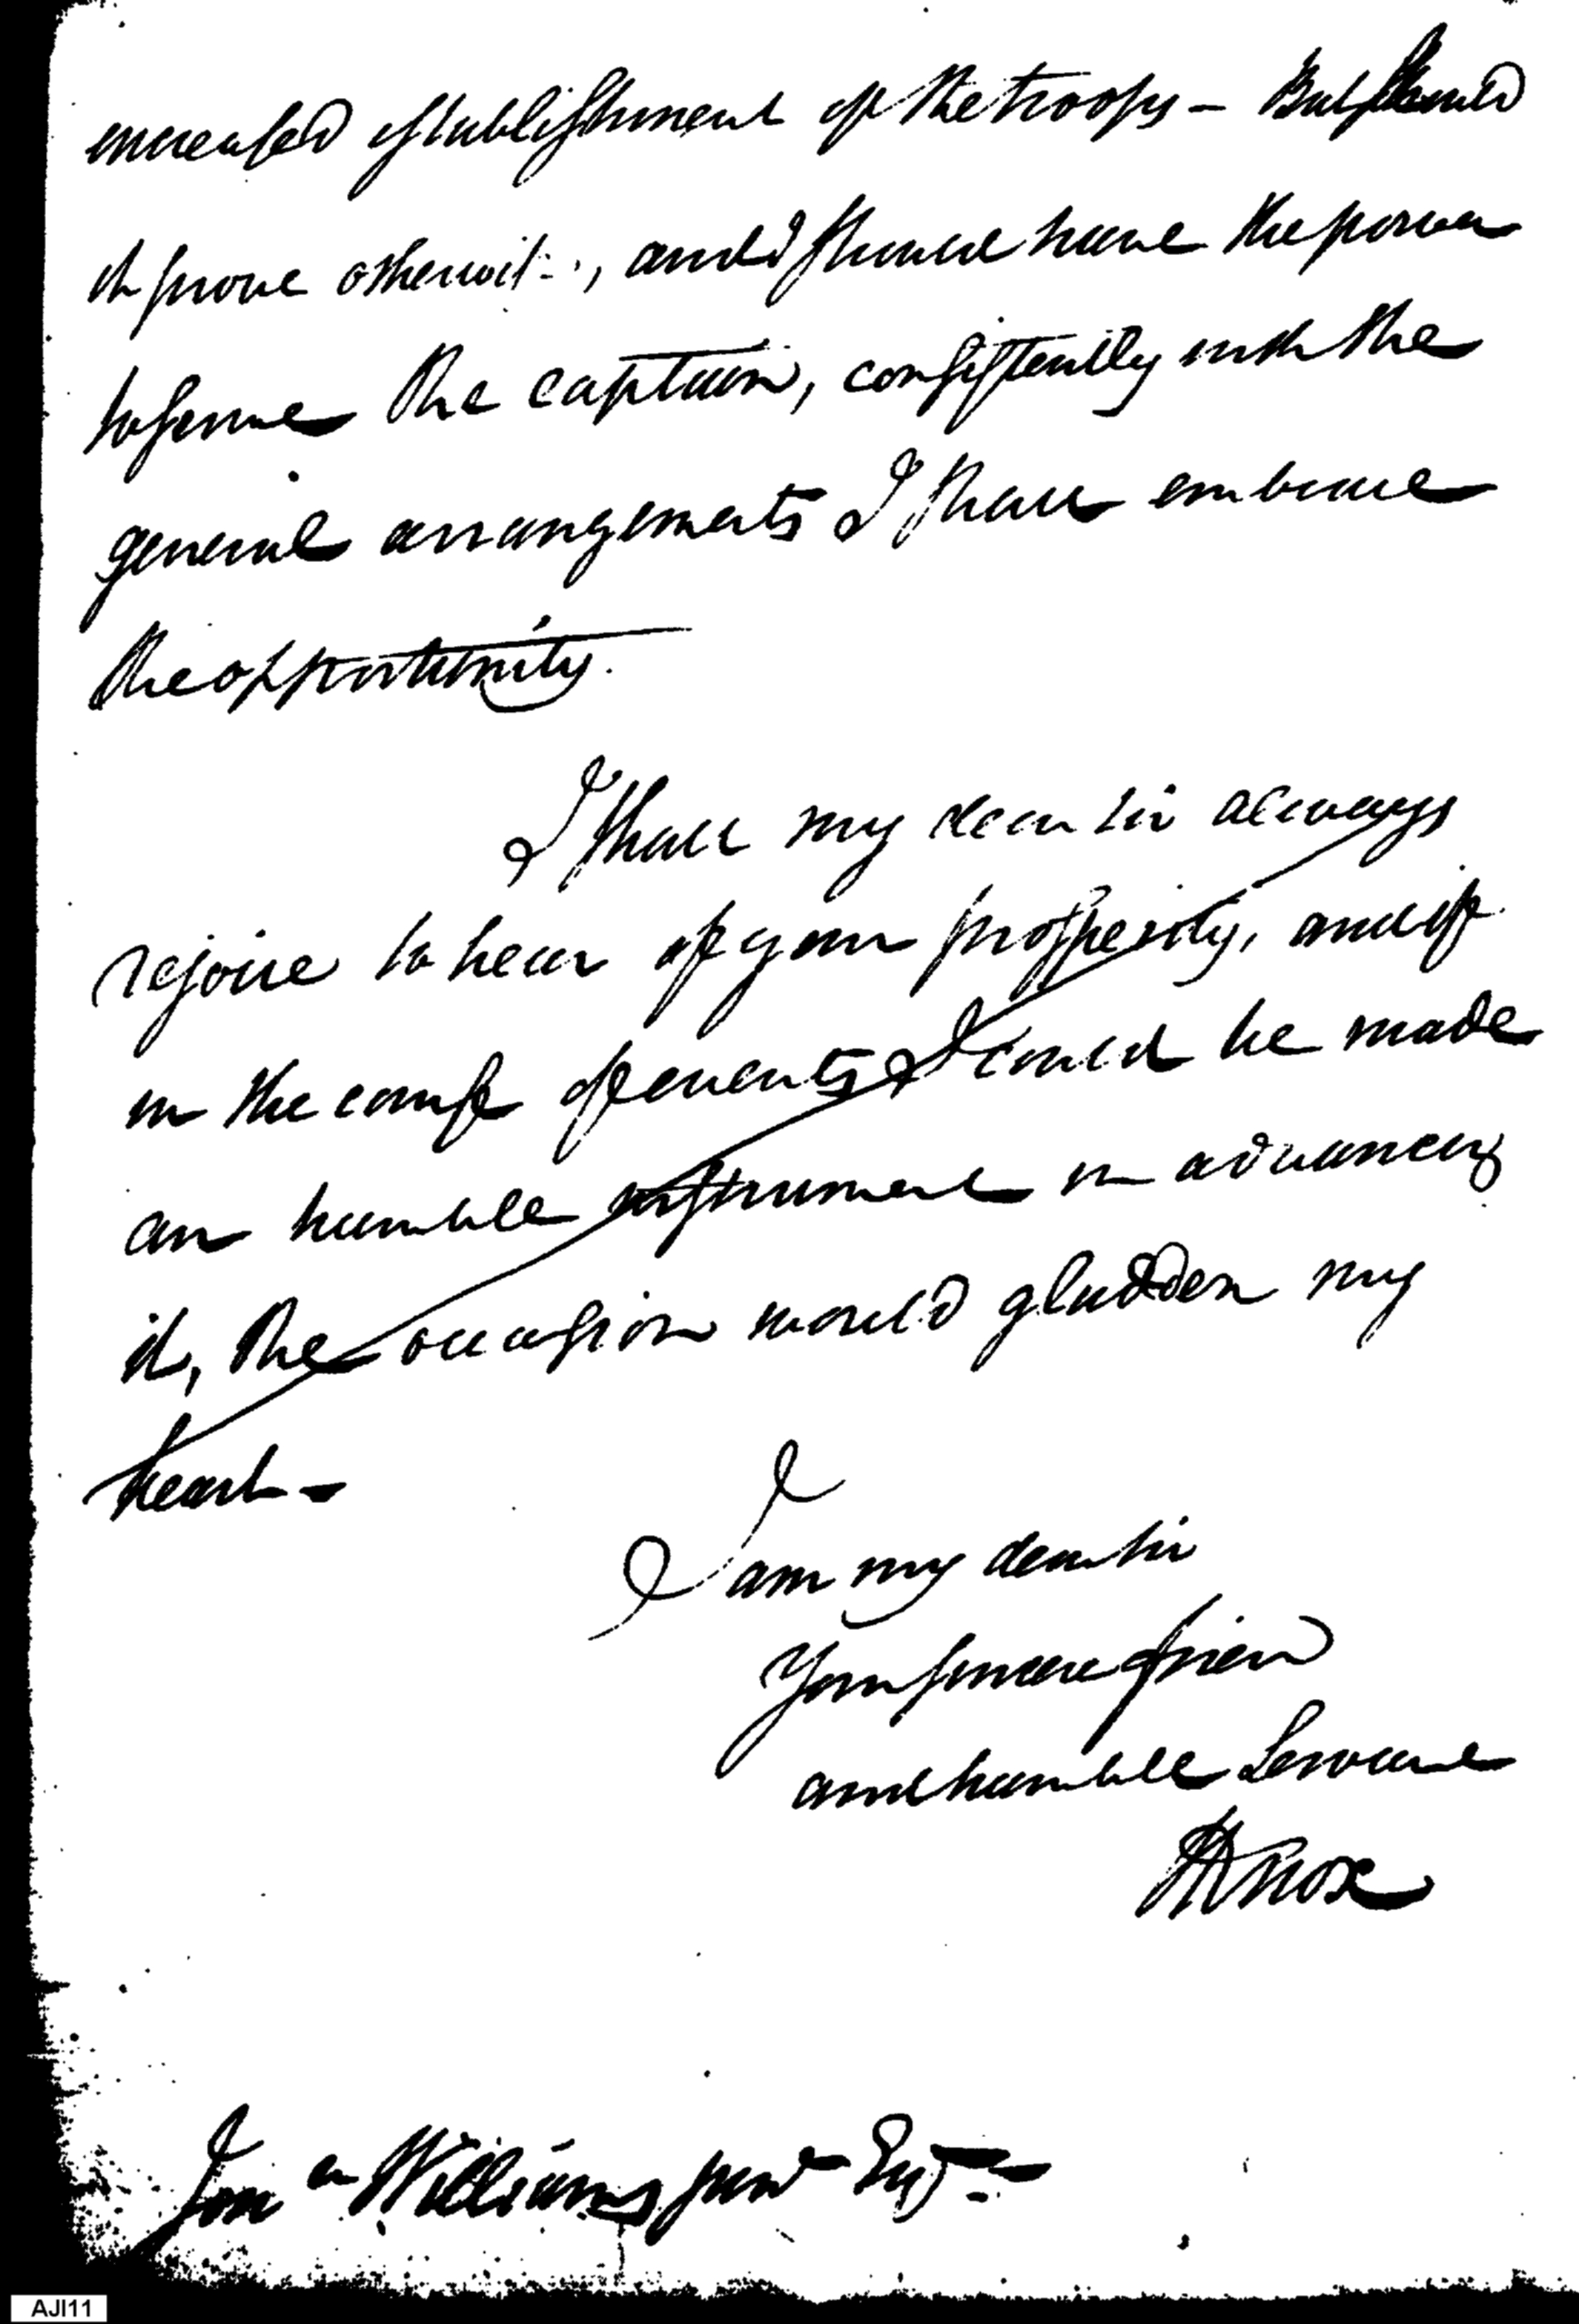 encreased establishment of the troops – But should
it prove otherwise, and I should have the power
to serve the captain, consistently with the
general arrangements I shall embrace
the opportunity.
I shall my dear sir always
rejoice to hear of your prosperity, and if
in the course of events I could be made
an humble instrument in advancing
it, the occasion would gladden my
heart –
I am my dear sir
Your sincere friend
and humble Servant
HKnox
Jonn Williams junr Esqr
AJI11